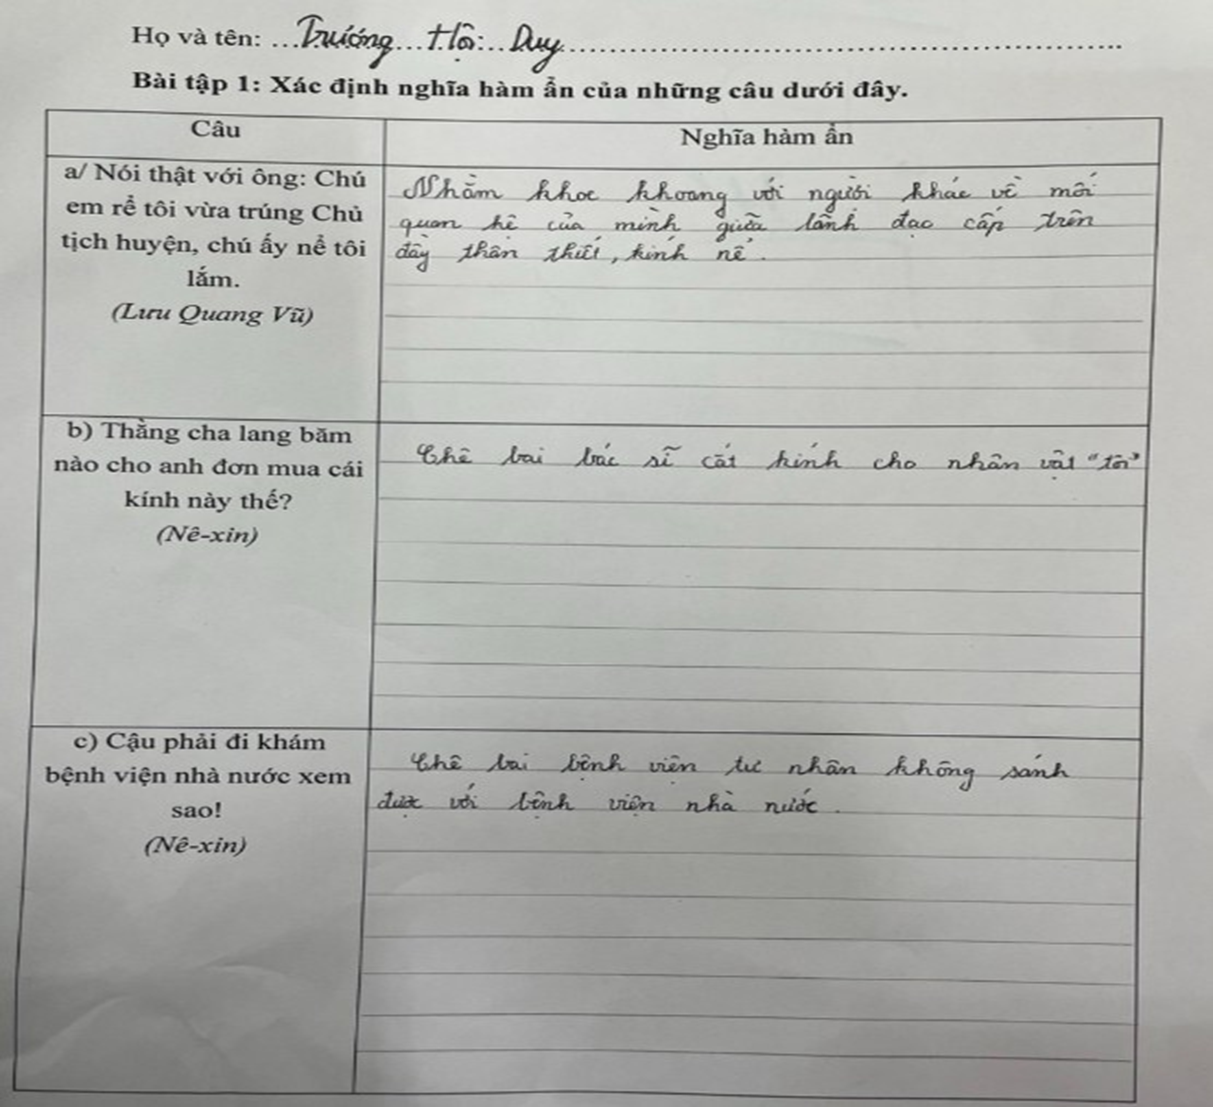 Họ và tên: ...Trương...Hội...Duy...
Bài tập 1: Xác định nghĩa hàm ẩn của những câu dưới đây.
Câu
Nghĩa hàm ẩn
a/ Nói thật với ông: Chú
em rể tôi vừa trúng Chủ
tịch huyện, chú ấy nể tôi
lắm.
(Lưu Quang Vũ)
Nhằm khoe khoang với người khác về mối
quan hệ của mình giữa lãnh đạo cấp trên
đầy thân thiết, kính nể.
b) Thằng cha lang băm
nào cho anh đơn mua cái
kính này thế?
(Nê-xin)
Chê bai bác sĩ cắt kính cho nhân vật "tôi"
c) Cậu phải đi khám
bệnh viện nhà nước xem
sao!
(Nê-xin)
Chê bai bệnh viện tư nhân không sánh
được với bệnh viện nhà nước.